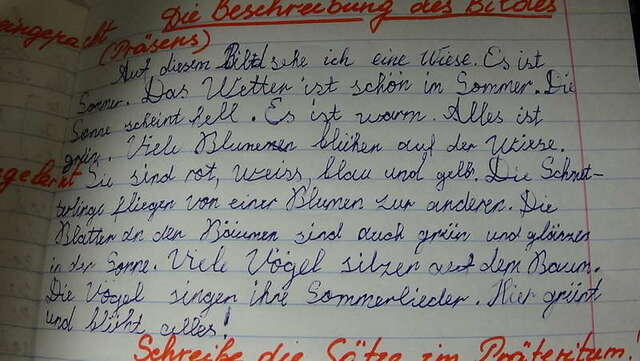 Die Beschreibung des Bildes
eingepackt
(Präsens)
Auf diesem Bild sehe ich eine Wiese. Es ist
Sommer. Das Wetter ist schön im Sommer. Die
Sonne scheint hell. Es ist warm. Alles ist
grün. Viele Blumenen blühen auf der Wiese.
gelernt
Sie sind rot, weiss, blau und gelb. Die Schmet-
terlinge fliegen von einer Blumen zur anderen. Die
Blätter an den Bäumen sind auch grün und glänzen
in der Sonne. Viele Vögel sitzen auf dem Baum.
Die Vögel singen ihre Sommerlieder. Hier grünt
und blüht alles!
Schreibe die Sätze im Präteritum!